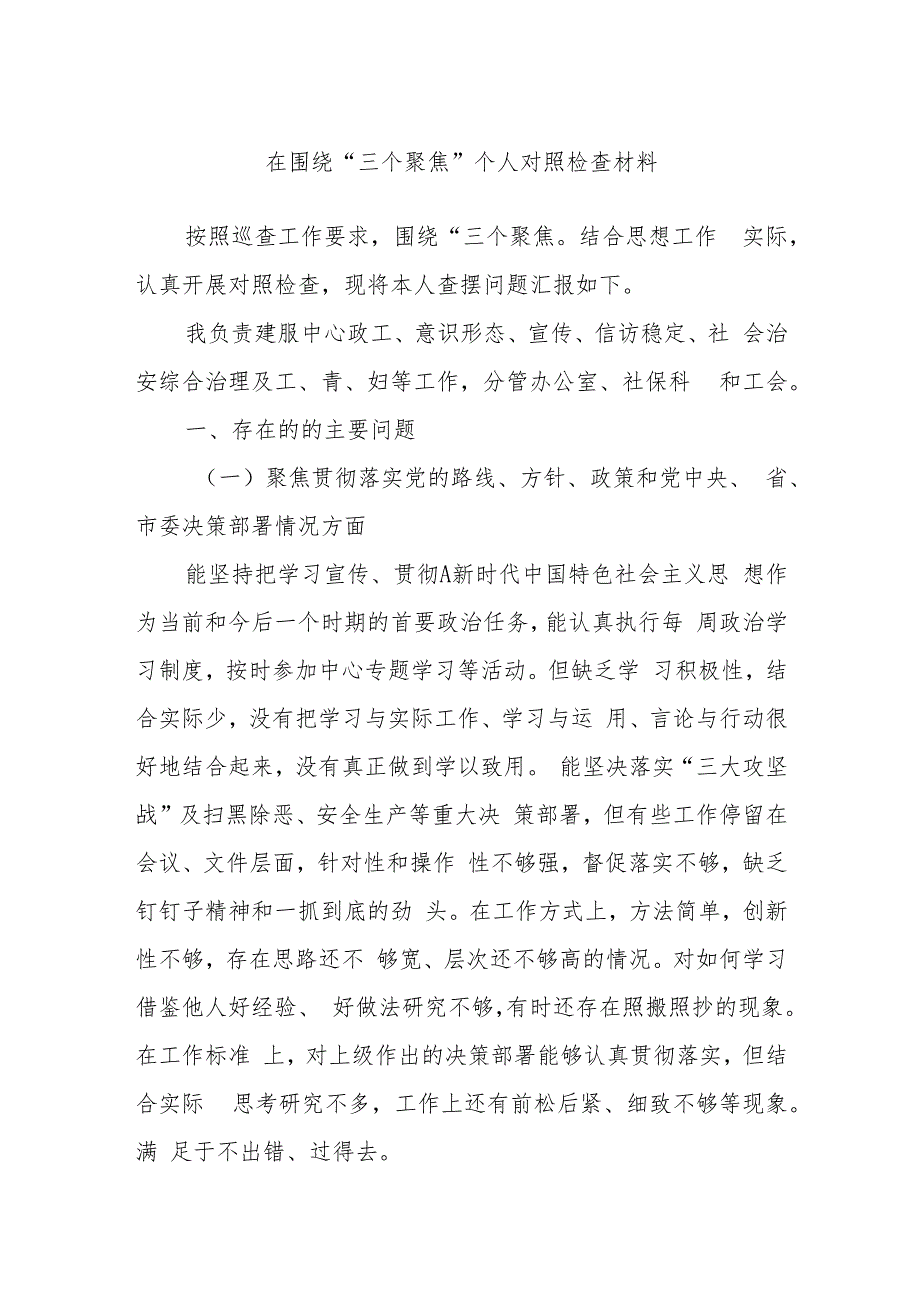 在围绕“三个聚焦”个人对照检查材料
按照巡查工作要求，围绕“三个聚焦。结合思想工作 实际，
认真开展对照检查，现将本人查摆问题汇报如下。
我负责建服中心政工、意识形态、宣传、信访稳定、社 会治
安综合治理及工、青、妇等工作，分管办公室、社保科 和工会。
一、存在的的主要问题
（一）聚焦贯彻落实党的路线、方针、政策和党中央、 省、
市委决策部署情况方面
能坚持把学习宣传、贯彻A新时代中国特色社会主义思 想作
为当前和今后一个时期的首要政治任务，能认真执行每 周政治学
习制度，按时参加中心专题学习等活动。但缺乏学 习积极性，结
合实际少，没有把学习与实际工作、学习与运 用、言论与行动很
好地结合起来，没有真正做到学以致用。 能坚决落实“三大攻坚
战”及扫黑除恶、安全生产等重大决 策部署，但有些工作停留在
会议、文件层面，针对性和操作 性不够强，督促落实不够，缺乏
钉钉子精神和一抓到底的劲 头。在工作方式上，方法简单，创新
性不够，存在思路还不 够宽、层次还不够高的情况。对如何学习
借鉴他人好经验、 好做法研究不够，有时还存在照搬照抄的现象。
在工作标准 上，对上级作出的决策部署能够认真贯彻落实，但结
合实际 思考研究不多，工作上还有前松后紧、细致不够等现象。
满 足于不出错、过得去。